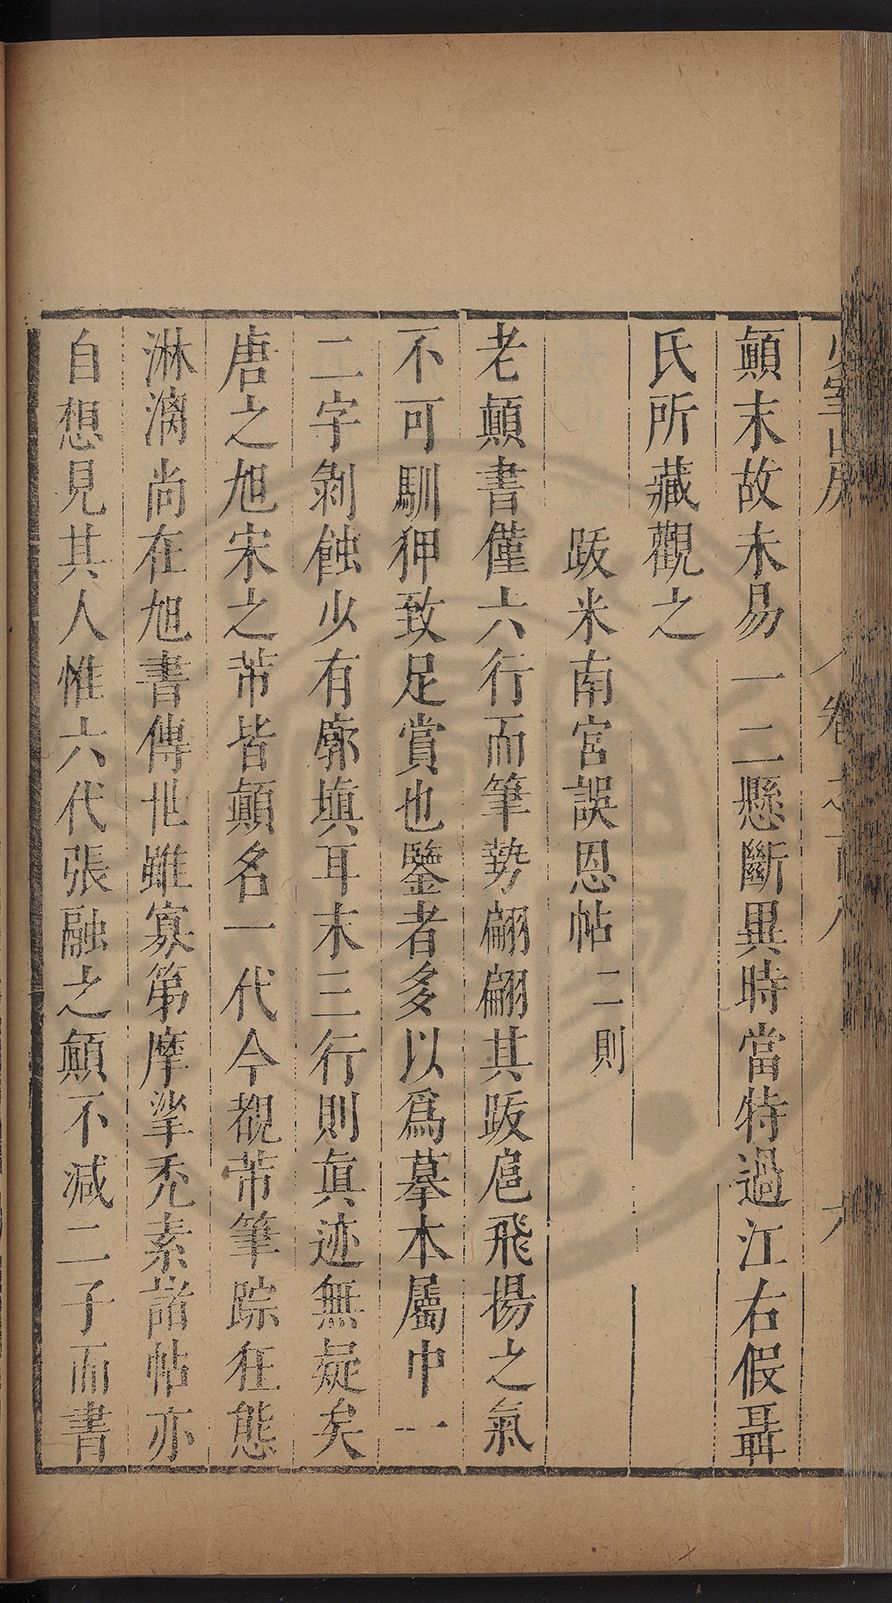 顛末故未易一二懸斷異時當特過江右假聶
氏所藏觀之
跋米南宮誤恩帖 二則
老顛書僅六行而筆勢翩翩其跋扈飛揚之氣
不可馴狎致足賞也鑒者多以爲摹本屬中一
二字剝蝕少有廓塡耳末三行則眞迹無疑矣
唐之旭宋之芾皆顛名一代今覩芾筆踪狂態
淋漓尚在旭書傳世雖寡第摩挲禿素諸帖亦
自想見其人惟六代張融之顛不減二子而書